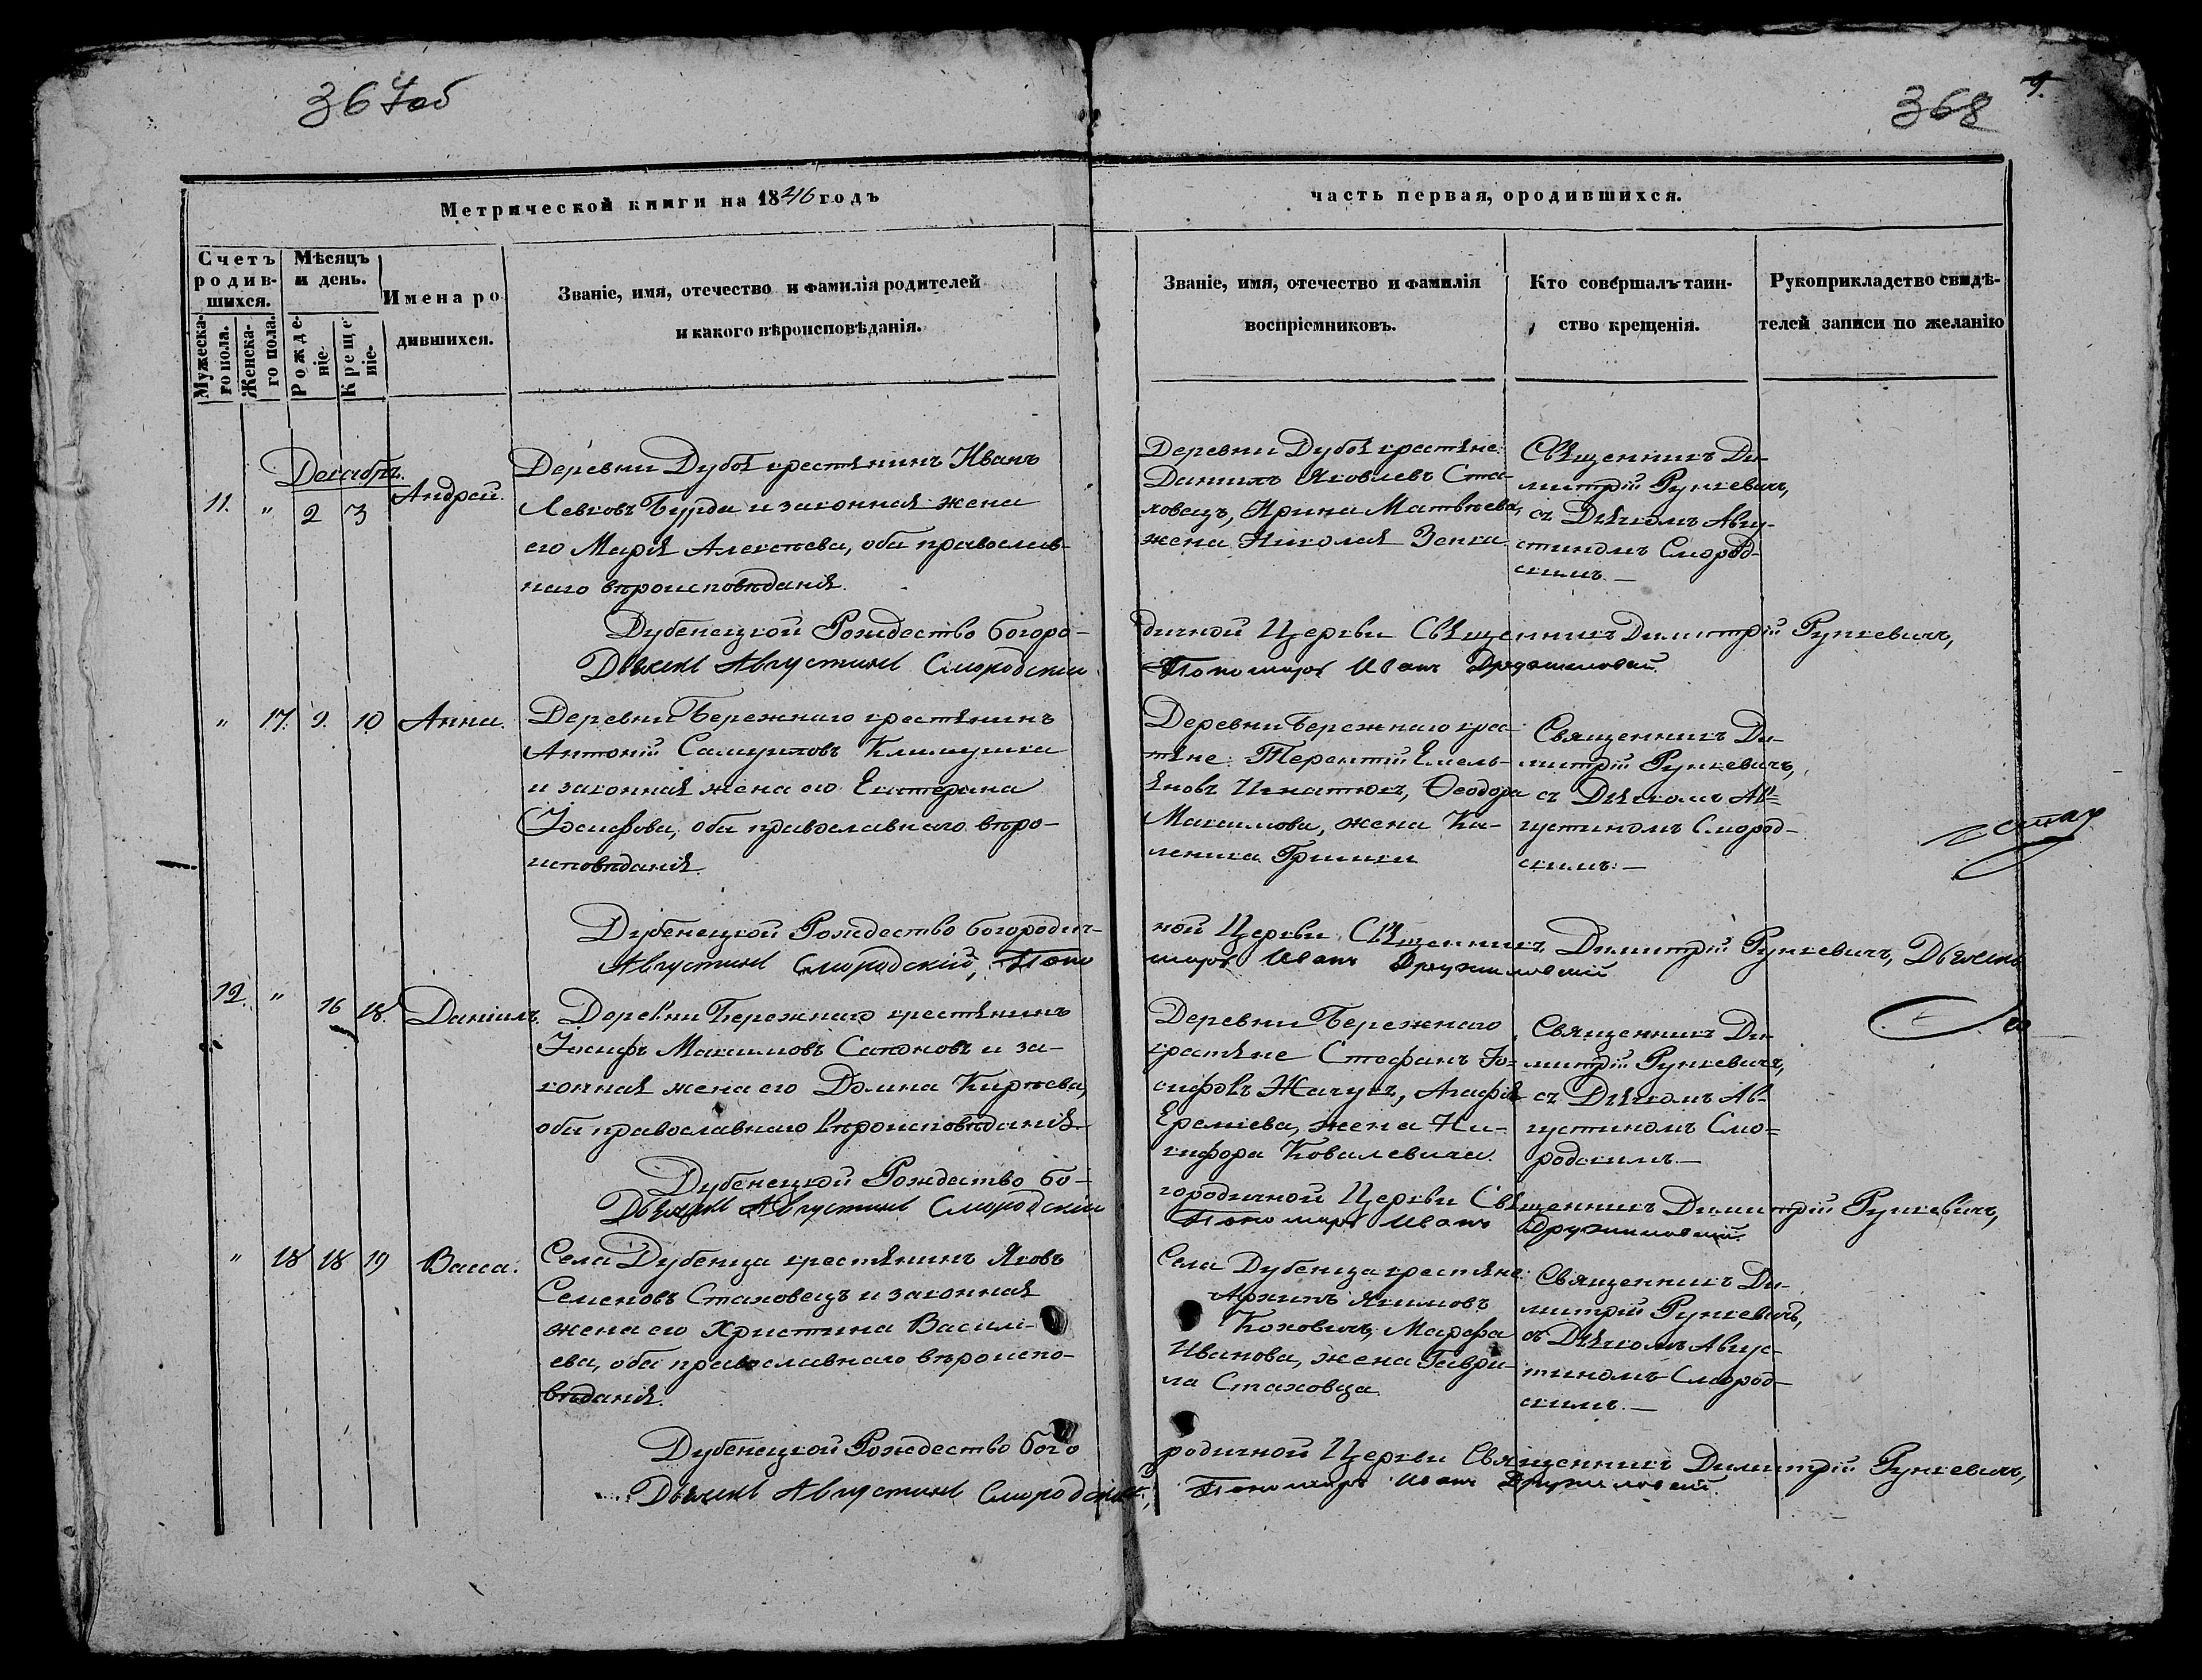 367об
368
9.
Метрической книги на 1846 годъ
часть первая, ородившихся.
Счетъ родив-шихся.
Мѣсяцъ и день.
Мужеска-го пола.
Женска-го пола.
Рожде-ніе.
Креще-ніе.
Имена ро-
дившихся.
Званіе, имя, отечество и фамилія родителей
и какого вѣроисповѣданія.
Званіе, имя, отечество и фамилія
воспріемниковъ.
Кто совершалъ таин-
ство крещенія.
Рукоприкладство свидѣ-
телей записи по желанію
Декабрь.
11. " 2 3 Андрей.
Деревни Дубоя крестянинъ Иванъ
Левковъ Бурда и законная жена
его Марія Алексѣева, оба православ-
наго вѣроисповѣданія.
Деревни Дубоя крестяне:
Даниилъ Яковлевъ Ста-
ховецъ, Ирина Матвѣева,
жена Николая Зенка.
Священникъ Ди-
митрій Рункевичъ,
съ Дьякомъ Авгу-
стиномъ Смород-
скимъ. —
Дубенецкой Рождество богоро-
дичной Церкви Свяшенникъ Димитрій Рункевичъ,
Дьячекъ Августинъ Смородскій
Пономарь Иванъ Дружиловскій.
" 17. 9. 10 Анна.
Деревни Бережнаго крестянинъ
Антоній Самуиловъ Климушка
и законная жена его Екатерина
Іосифова, оба православнаго вѣро-
исповѣданія.
Деревни Бережнаго кре-
стяне: Терентій Емель-
яновъ Игнатюкъ, Ѳеодора
Максимова, жена Ка-
леника Гришки
Священникъ Ди-
митрій Рункевичъ,
съ Дьякомъ Ав-
густиномъ Смород-
скимъ. —
Дубенецкой Рождество богородич-
ной Церкви Священникъ Димитрій Рункевичъ, Дьячекъ
Августинъ Смородскій, Поно
марь Иванъ Дружиловскій
12. " 16 18. Даніилъ.
Деревни Бережнаго крестянинъ
Іосифъ Максимовъ Сахоновъ и за-
конная жена его Домна Кирѣева,
оба православнаго вѣроисповѣданія.
Деревни Бережнаго
крестяне Стефанъ Іо-
сифовъ Жачукъ, Агафія
Ереміева, жена Ни-
кифора Ковалевича.
Священникъ Ди-
митрій Рункевичъ,
съ Дьякомъ Ав-
густиномъ Смо-
родскимъ. —
Дубенецкой Рождество бо-
городичной Церкви Священникъ Димитрій Рункевичъ,
Дьячекъ Августинъ Смородскій
Пономарь Иванъ Дружиловскій.
" 18 18 19 Васса.
Села Дубенца крестянинъ Яковъ
Семеновъ Стаховецъ и законная
жена его Христина Васили-
ева, оба православнаго вѣроиспо-
вѣданія.
Села Дубенца крестяне:
Архипъ Якимовъ
Коховичъ, Марфа
Иванова, жена Гаври-
ла Стаховца.
Священникъ Ди-
митрій Рункевичъ,
съ Дьякомъ Авгус-
тиномъ Смород-
скимъ. —
Дубенецкой Рождество бого
родичной Церкви Священникъ Димитрій Рункевичъ,
Дьячекъ Августинъ Смородскій,
Пономарь Иванъ Дружиловскій.